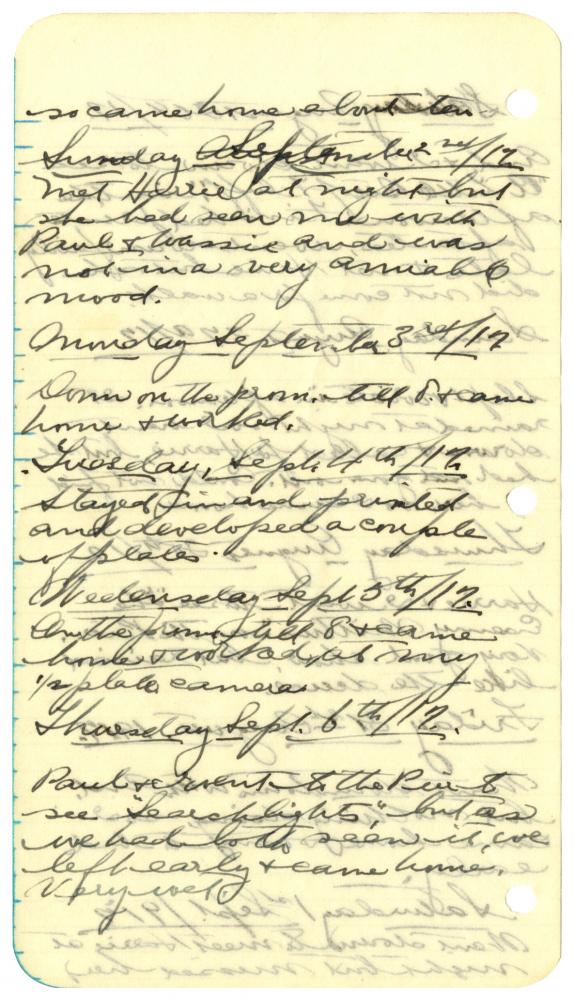 so came home about ten
Sunday September 2nd/17
Met Harrie at night but
she had seen me with
Paul & Wassie and was
not in a very amiable
mood.
Monday September 3rd/17
Down on the prom. till 8. & came
home & worked.
Tuesday, Sept. 4th/17.
Stayed in and printed
and developed a couple
of plates.
Wedensday Sept 5th/17.
On the prom. till 8 & came
home & worked at my
1/2 plate camera.
Thursday Sept. 6th/17.
Paul & I went to the Pier to
see "Searchlights", but as
we had both seen it, we
left early & came home.
Very wet.